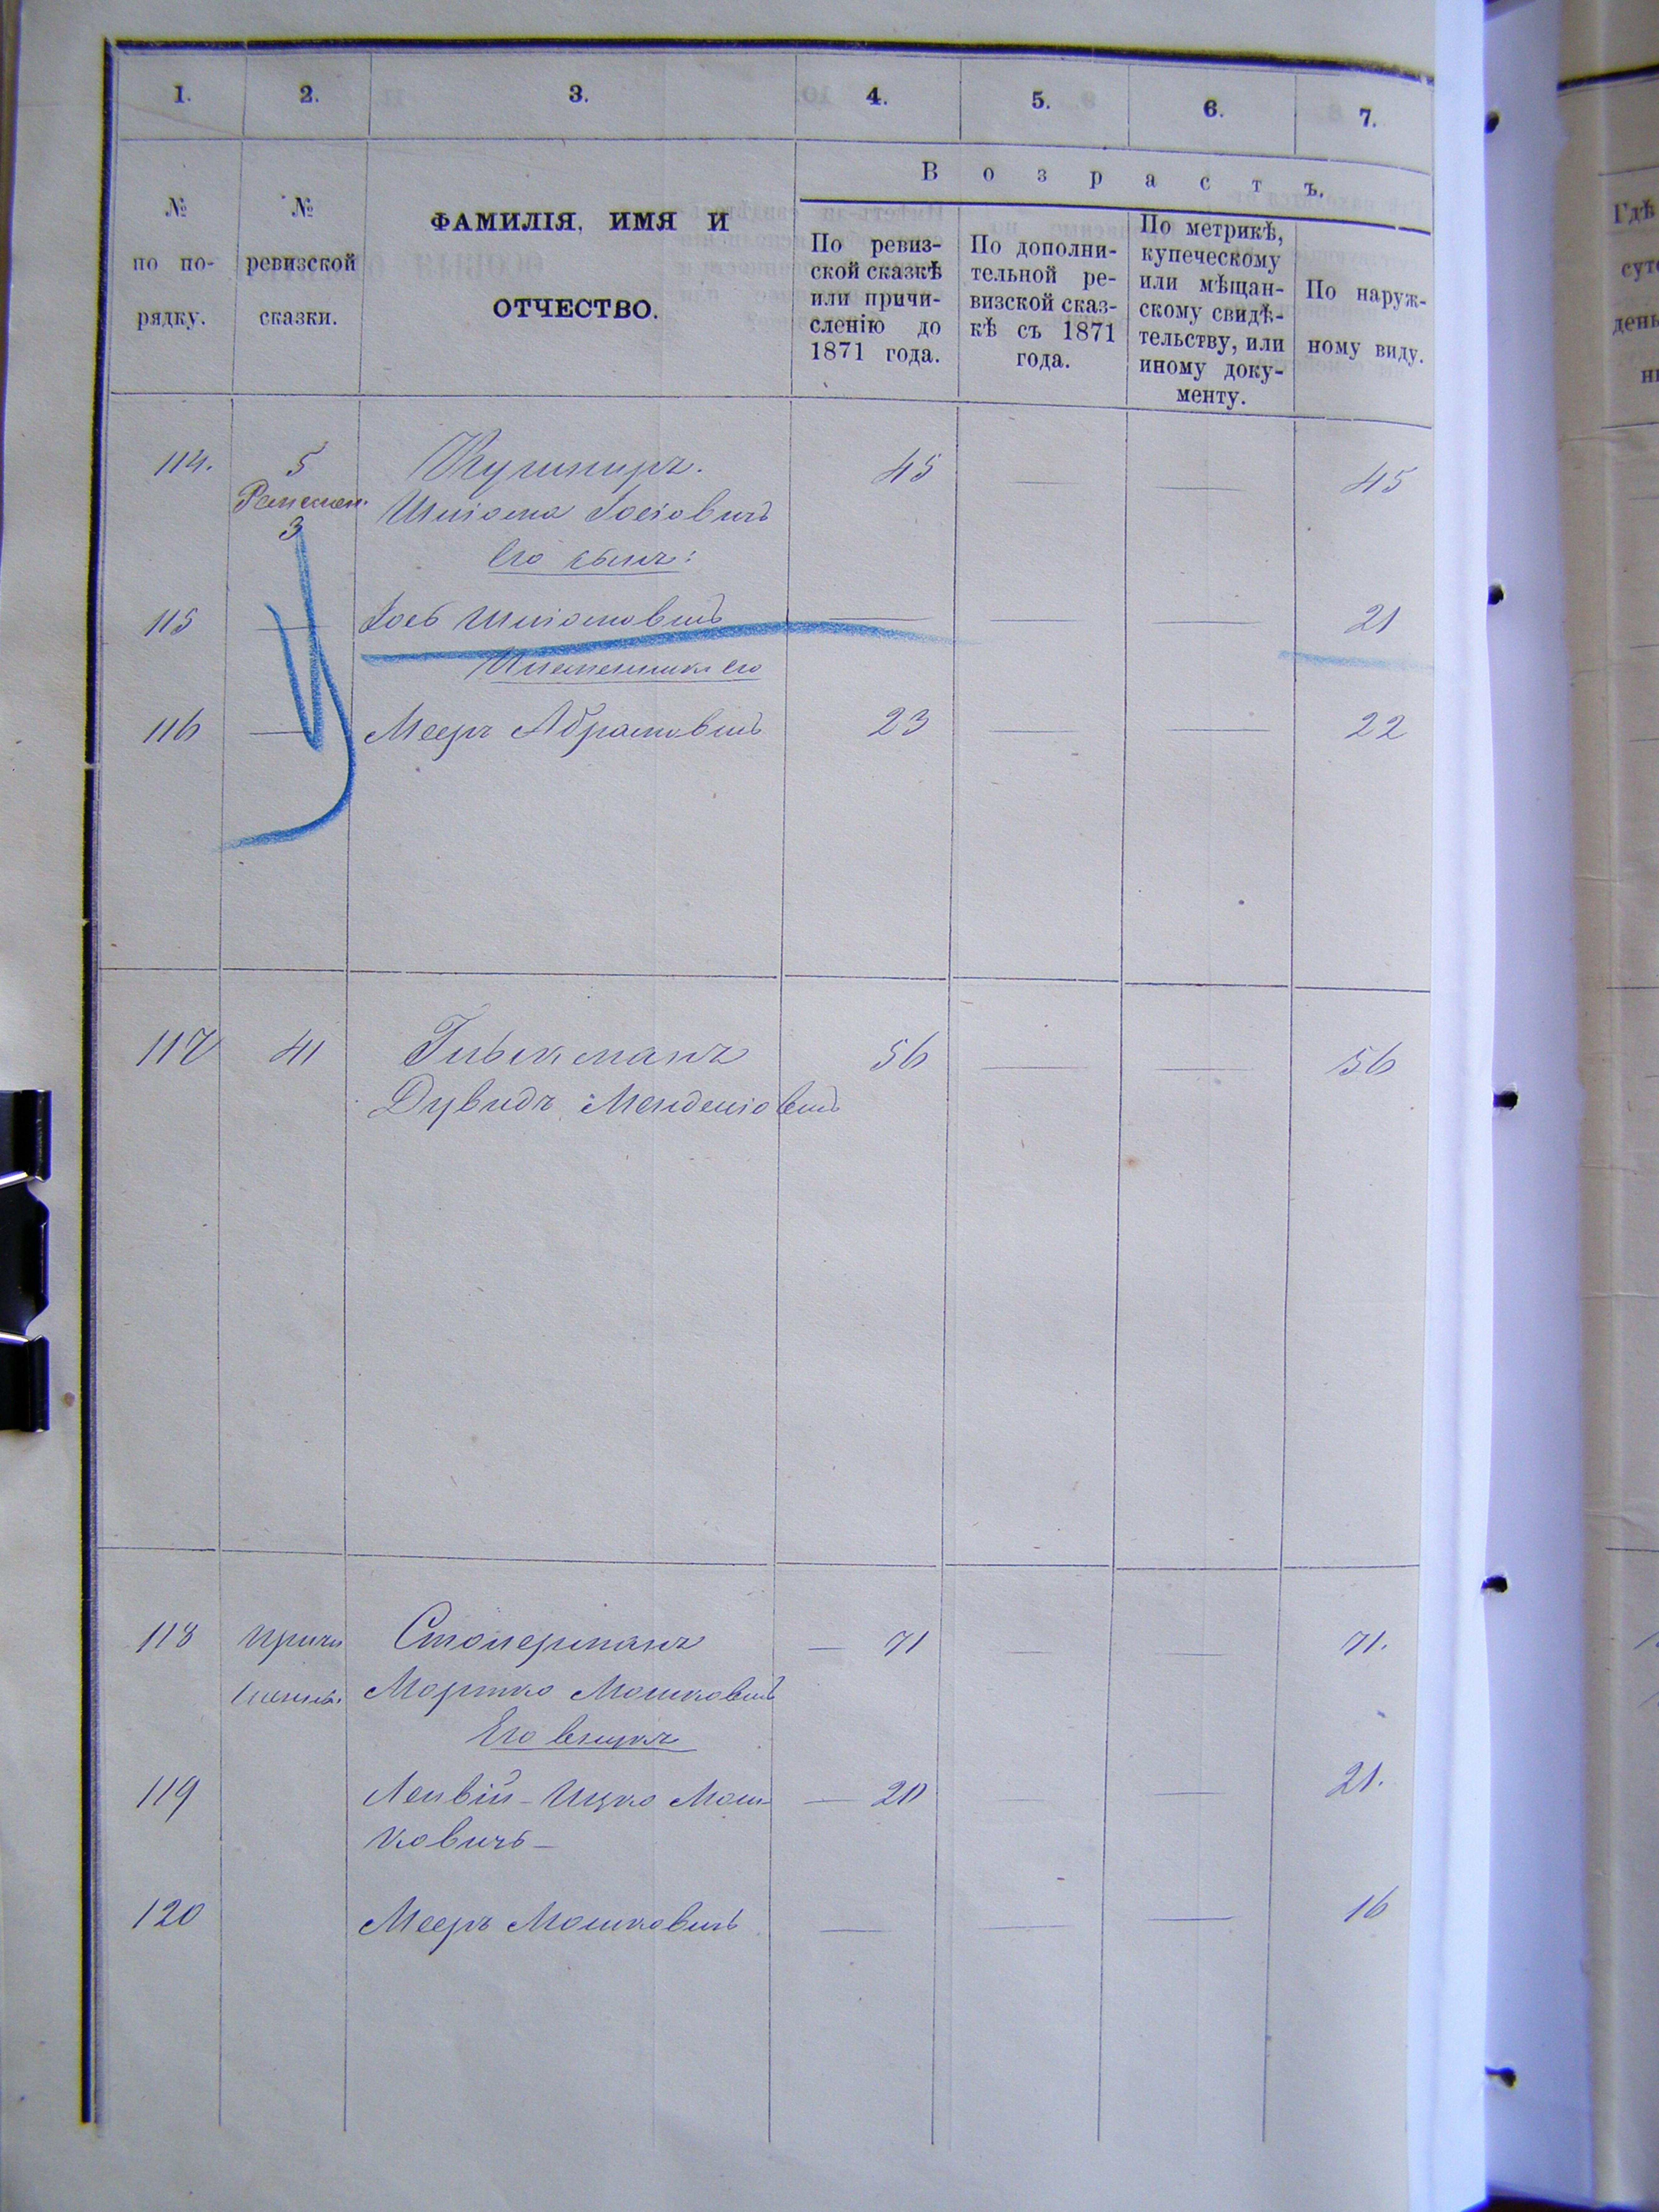 1. 2. 3. 4. 5. 6. 7.
№ по порядку.
№ ревизской сказки.
ФАМИЛІЯ, ИМЯ И
ОТЧЕСТВО.
Возрастъ.
По ревиз-
ской сказкѣ
или причи-
сленію до
1871 года.
По дополни-
тельной ре-
визской сказ-
кѣ съ 1871
года.
По метрикѣ,
купеческому
или мѣщан-
скому свидѣ-
тельству, или
иному доку-
менту.
По наруж-
ному виду.
Гдѣ
114. 5 Кушниръ. 45 — — 45
3 Шлiома Iосiовичъ
Его сынъ:
115 — Iось Шлiомовичъ — — — 21
Племянникъ его
116 — Мееръ Абрамовичъ 23 — — 22
117 41 56 — — 56
Дувидъ Менделiовичъ
118 Причи Столерманъ — 71 — — 71.
сленный Мортко Мошковичъ
Его внуки
119 Лейвiй-Ицко Мош — 20 — — 21.
ковичъ —
120 Мееръ Мошковичъ — — — 16